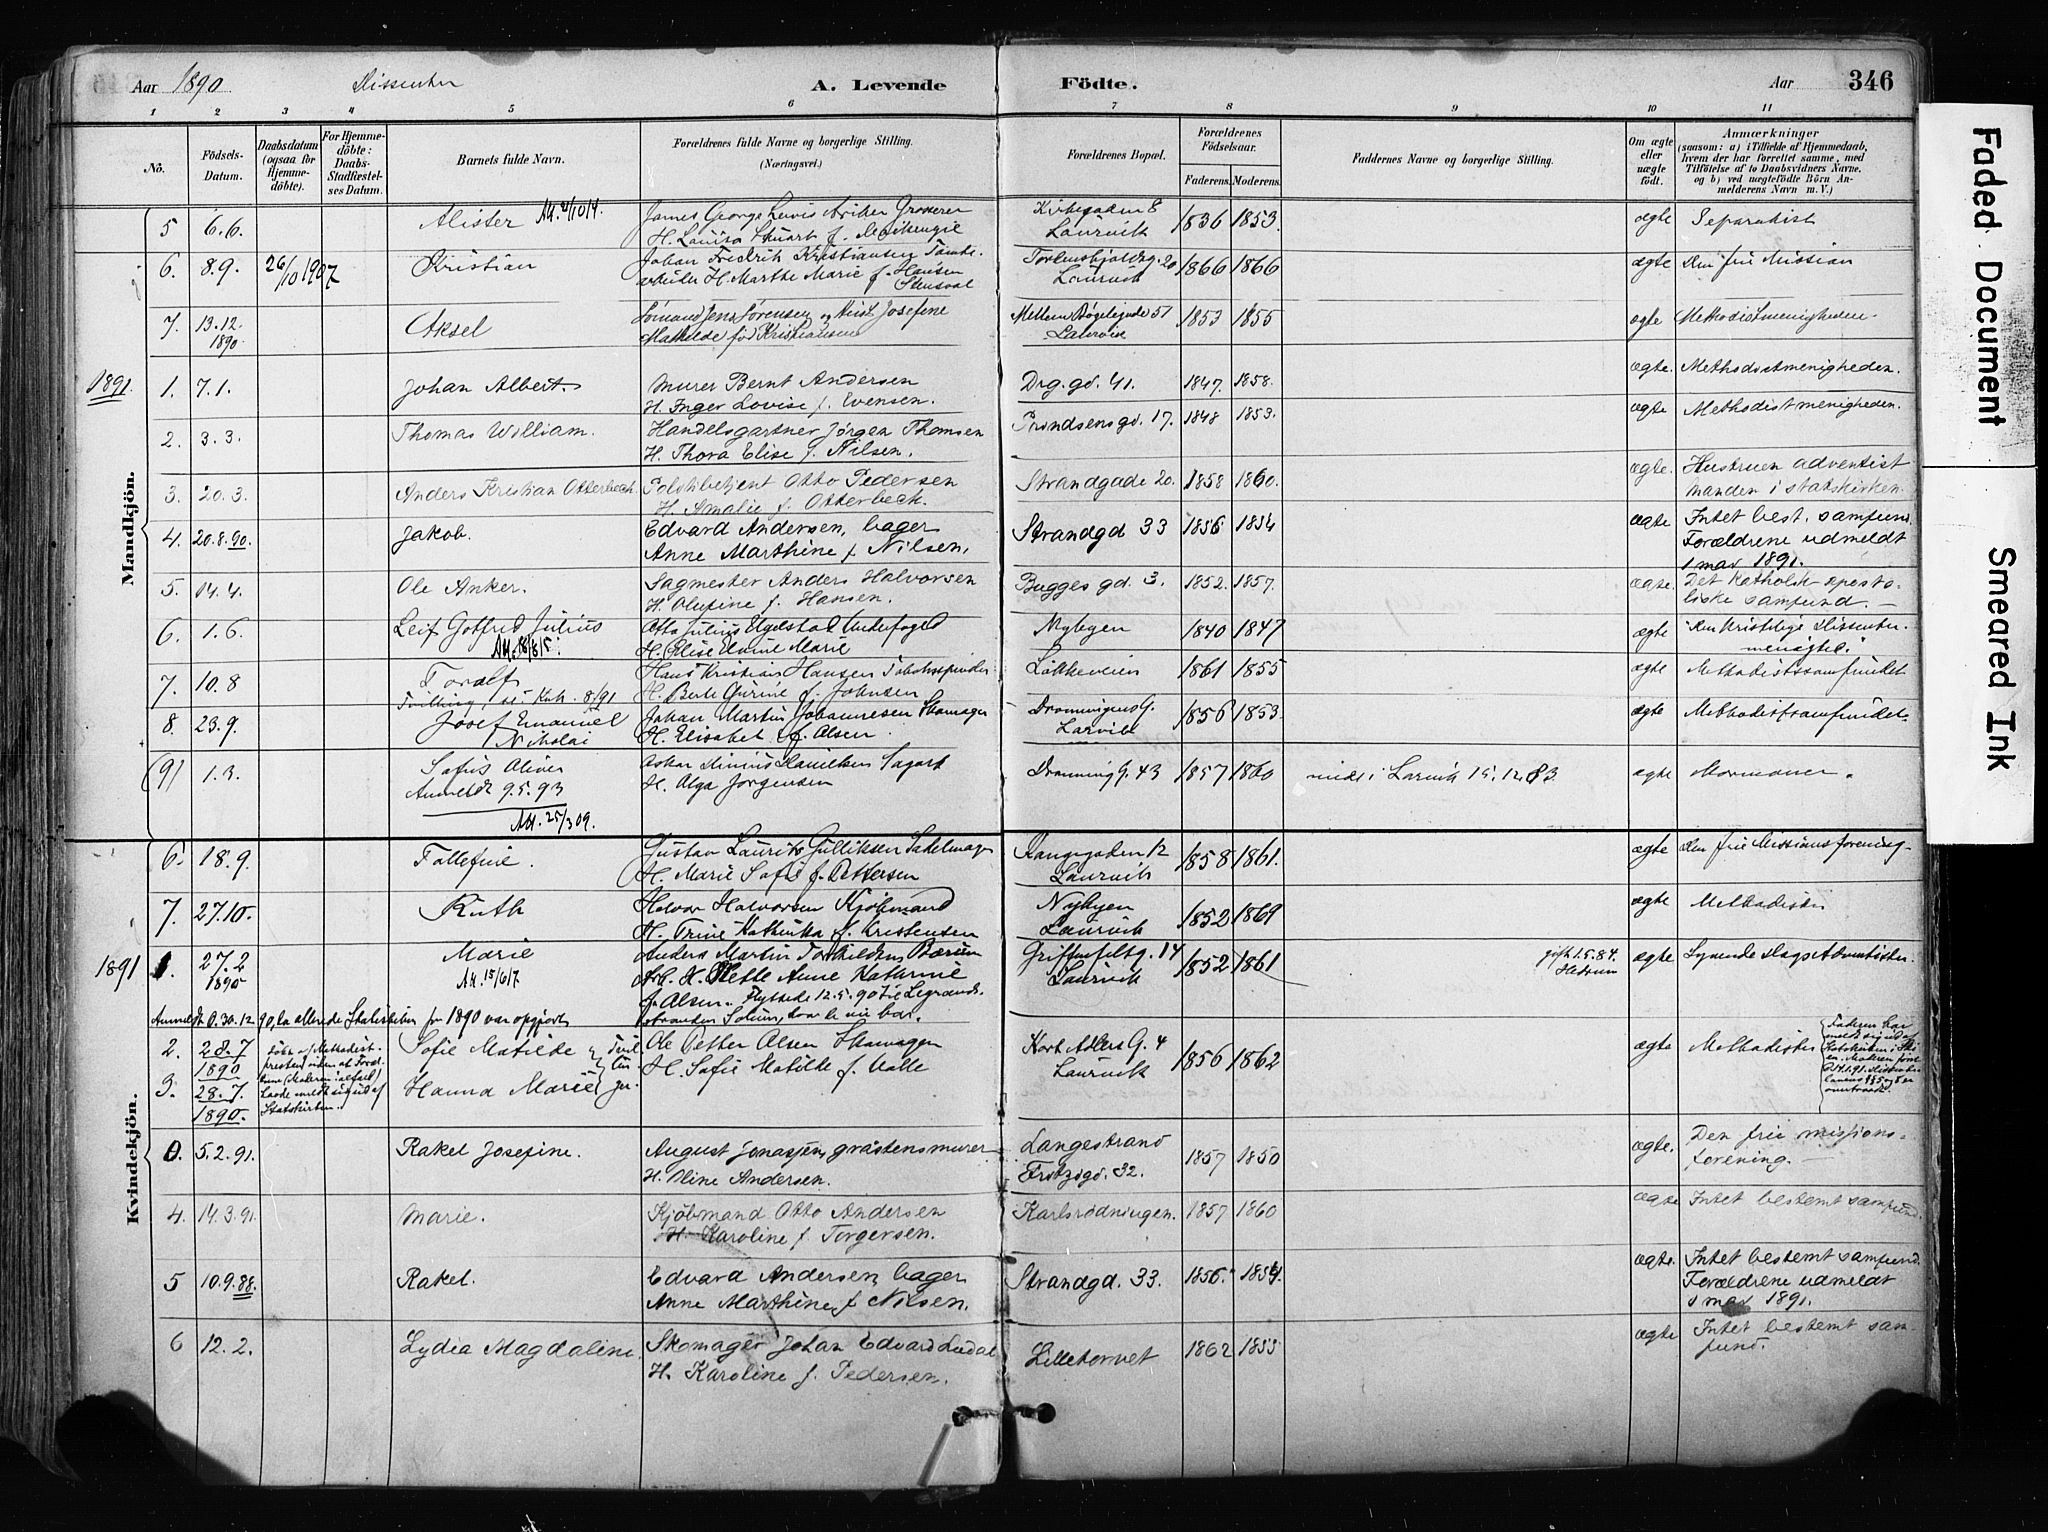 Aar 1890
Dissenter
A. Levende
Födte.
Aar
346
1 2 3 4 5 6 7 8 9 10 11
No.
Födsels-Datum.
Daabsdatum (ogsaa for Hjemmedöbte).
For Hjemmedöbte: Daabs-Stadfæstelses Datum.
Barnets fulde Navn.
Forældrenes fulde Navne og borgerlige Stilling. (Næringsvei.)
Forældrenes Bopæl.
Forældrenes Födselsaar.
Faderens. Moderens.
Faddernes Navne og borgerlige Stilling.
Om ægte eller uægte födt.
Anmærkninger (saasom: a) i Tilfælde af Hjemmedaab, hvem der har forrettet samme, med Tilföielse af to Daabsvidners Navne, og b) ved uægtefödte Börn Anmelderens Navn m. V.)
Mandkjön.
5 6.6. Alister James George Lewis Grosserer Laurvik 1836 1853. ægte Separatist
H. Louisa Stuart f.
6. 8.9. 26/10 1907 Kristian Johan Fredrik Kristiansen Laurvik 1866 1866 ægte Den frie Mission
H. Marthe Marie f. Hansen
7. 13.12. 1890 Aksel Sömand Jens Sörensen og Hust Josefine Laurvik 1853 1855 ægte Methodistmenigheden.
Mathilde föd Kristiansen
1891
1. 7.1. Johan Albert. Murer Bernt Andersen Drg. gd. 41. 1847. 1858. ægte. Methodistmenigheden.
H. Inger Lovise f. Evensen.
2. 3.3. Thomas William. Handelsgartner Jørgen Thomsen Prindsensgd. 17. 1848 1853. ægte Methodistmenigheden.
H. Thora Elise f. Nilsen.
3. 20.3. Anders Kristian Otterbech. Politibetjent Otto Pedersen Strandgade 20. 1858 1860. ægte. Hustruen adventist
H. Amalie f. Otterbech. manden i statskirken.
4. 20.8.90. Jakob. Edvard Andersen, bager Strandgd 33 1856. 1854 ægte Intet best. samfund.
Anne Marthine f Nilsen. Forældrene udmeldt
1 mai 1891.
5. 14.4. Ole Anker. Sagmester Anders Halvorsen Bugges gd. 3. 1852. 1857. ægte. Det Katholsk aposto-
H. Olufine f. Hansen. liske samfund.
6. 1.6. Leif Gotfred Julius Otto Julius Ugelstad Underfoged Nybyen 1840 1847 ægte Den Kristelige Dissenter-
H. Elise Marie
7. 10.8 Toralf Hans Kristian Hansen Løkkeveien 1861 1855 ægte Methodistsamfundet
Tvilling, se Kvk. 8/91 H. f. Johnsen
8. 23.9. Josef Emanuel Johan Martin Johannesen Skomager Dronningens G. 1856 1853. ægte Methodistsamfundet.
Nikolai H. Elisabet f. Olsen. Larvik
(9) 1.3. Sofus Oliver Danielsen Dronning G. 43 1857 1860 i Larvik 15.12.83 ægte Mormoner.
Anmeldt 9.5.93 H. Olga Jørgensen
25/3 09.
Kvindekjön.
6. 18.9. Gustav Laurits Gulliksen Sadelmager Kongegaden 12 1858 1861. ægte Den frie Missionsforening
H. Marie Sofie f. Pettersen Laurvik
7. 27.10. Ruth Halvor Halvorsen Kjøbmand Nybyen 1852 1869 ægte Methodister
H. Trine Kathinka f. Kristensen Laurvik
1891 1. 27.2 1890 Marie Anders Martin Torkildsen Griffenfeldtg. 14 1852 1861 gift 1.5.84. Hedrum ægte Syvende Dags Adventister.
15/6 17 Mette Anne Kathrine Laurvik
f. Olsen. Flyttede 12.5.90
Anmeldt d. 30.12.90, da allerede Statistiken for 1890 var opgjort.
2. 28.7 1890 Sofie Matilde Ole Petter Olsen Skomager Kort Adlers G. 4 1856 1862 ægte Methodister
3. 28.7. 1890. Hanna Marie H. Sofie Matilde f. Valle Laurvik
0. 5.2.91. Rakel Josefine. August Jonassen, gråstensmurer Langestrand 1857 1850 ægte. Den frie missions-
H. Oline Andersen. 32. forening.
4. 14.3.91. Marie. Kjöbmand Otto Andersen Karlsrødningen. 1857 1860 ægte Intet bestemt samfund.
H. Karoline f. Torgersen.
5 10.9.88. Rakel. Edvard Andersen, bager Strandgd. 33. 1856. 1854. ægte. Intet bestemt samfund.
Anne Marthine f Nilsen. Forældrene udmeldt
1 mai 1891.
6 12.2. Lydia Magdaline. Skomager Johan Edvard Lilletorvet 1862 1855 ægte Intet bestemt sam
H. Karoline f. Pedersen. fund.
Faded Document
Smeared Ink